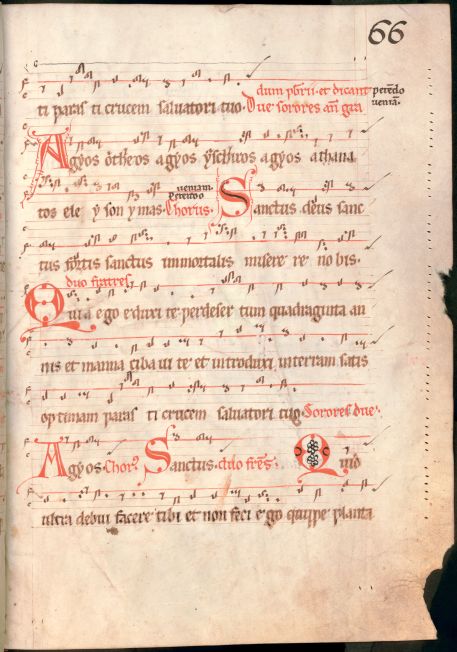 66
ti paras ti crucem saluatori tuo. dum pſbrii. et dicant petendo
Due sorores añ gra ueniã.
Agyos otheos agyos yschiros agyos athana
ueniam
petendo
tos ele yson ymas. Chorus. Sanctus deus sanc
tus fortis sanctus immortalis misere re no bis.
duo fratres
Quia ego eduxi te per deser tum quadraginta an
nis et manna cibaui te et introduxi interram satis
optimam paras ti crucem saluatori tuo. Sorores due.
Agyos. Chor9. Sanctus. duo fres. Quid
ultra debui facere tibi et non feci ego quippe planta